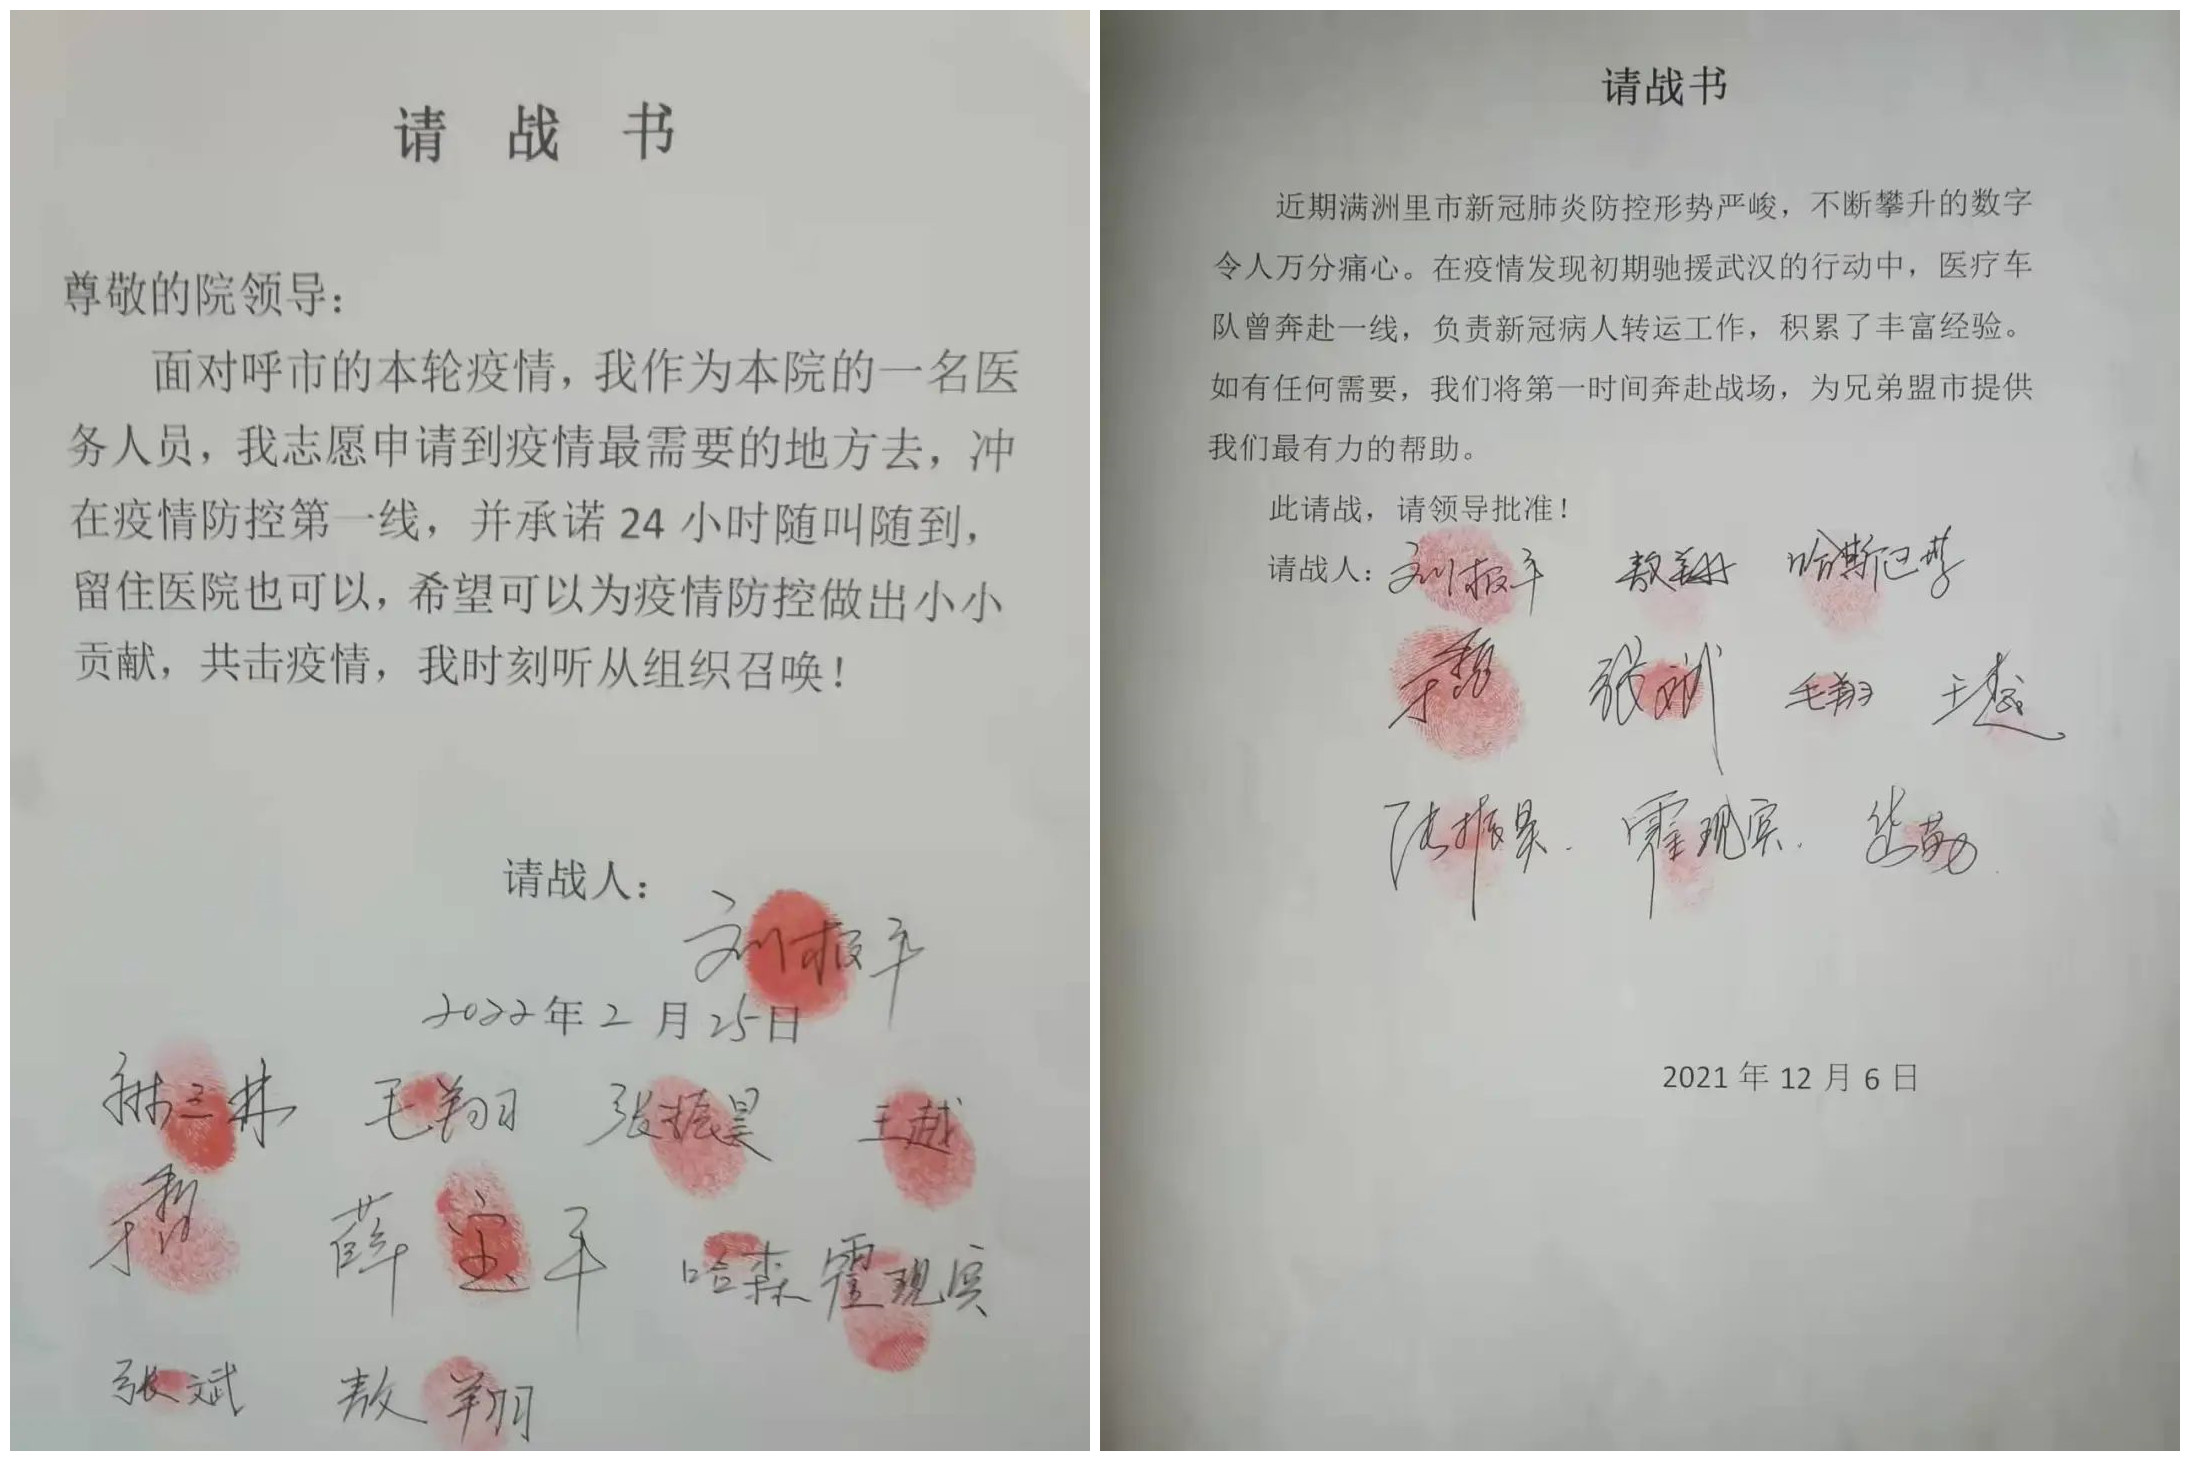 请战书
尊敬的院领导：
面对呼市的本轮疫情，我作为本院的一名医
务人员，我志愿申请到疫情最需要的地方去，冲
在疫情防控第一线，并承诺 24 小时随叫随到，
留住医院也可以，希望可以为疫情防控做出小小
贡献，共击疫情，我时刻听从组织召唤！
请战人：
刘报平
2022年2月25日
毛翔 张振昊 王越
薛宝平 哈森 霍现宾
张斌 敖翔
请战书
近期满洲里市新冠肺炎防控形势严峻，不断攀升的数字
令人万分痛心。在疫情发现初期驰援武汉的行动中，医疗车
队曾奔赴一线，负责新冠病人转运工作，积累了丰富经验。
如有任何需要，我们将第一时间奔赴战场，为兄弟盟市提供
我们最有力的帮助。
此请战，请领导批准！
请战人：刘报平 敖翔
张斌 毛翔 王越
张振昊 霍现宾
2021 年 12 月 6 日